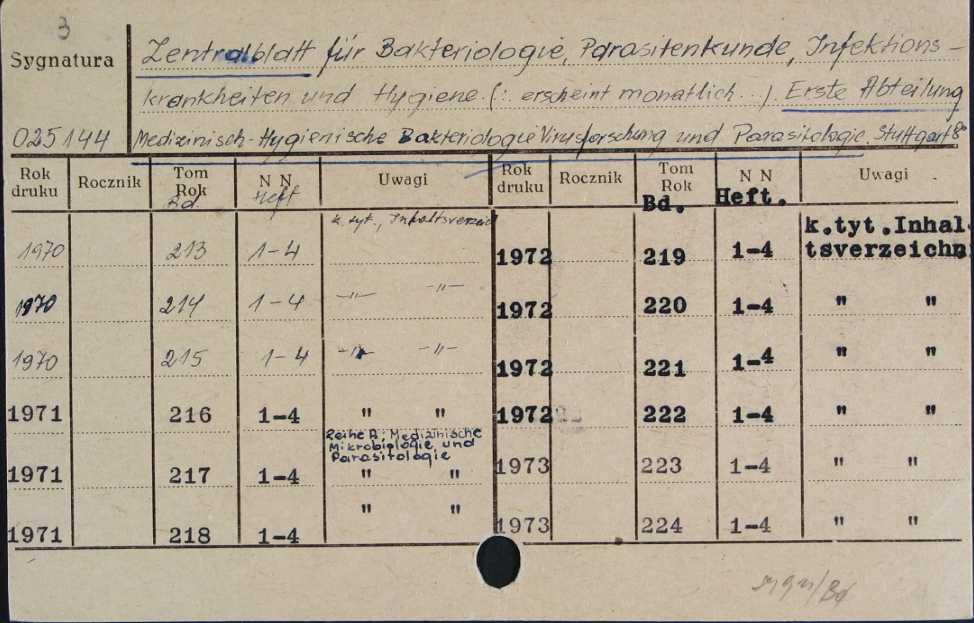 3
Sygnatura
Zentralblatt für Bakteriologie, Parasitenkunde, Infektions-
krankheiten und Hygiene (: erscheint monatlich. ). Erste Abteilung
025144 Medizinisch-Hygienische Bakteriologie Virusforschung und Parasitologie. Stuttgart 8°
Rok druku Rocznik Tom Rok Bd. N N Heft Uwagi Rok druku Rocznik Tom Rok Bd. N N Heft. Uwagi
1970 213 1-4 k. tyt., Inhaltsverzeich 1972 219 1-4 k.tyt.Inhal-
tsverzeichn
1970 214 1-4 -"- -"- 1972 220 1-4 " "
1970 215 1-4 -"- -"- 1972 221 1-4 " "
1971 216 1-4 " " 1972 222 1-4 " "
Reihe A, Medizinische
Mikrobiologie und
Parasitologie
1971 217 1-4 " " 1973 223 1-4 " "
1971 218 1-4 " " 1973 224 1-4 " "